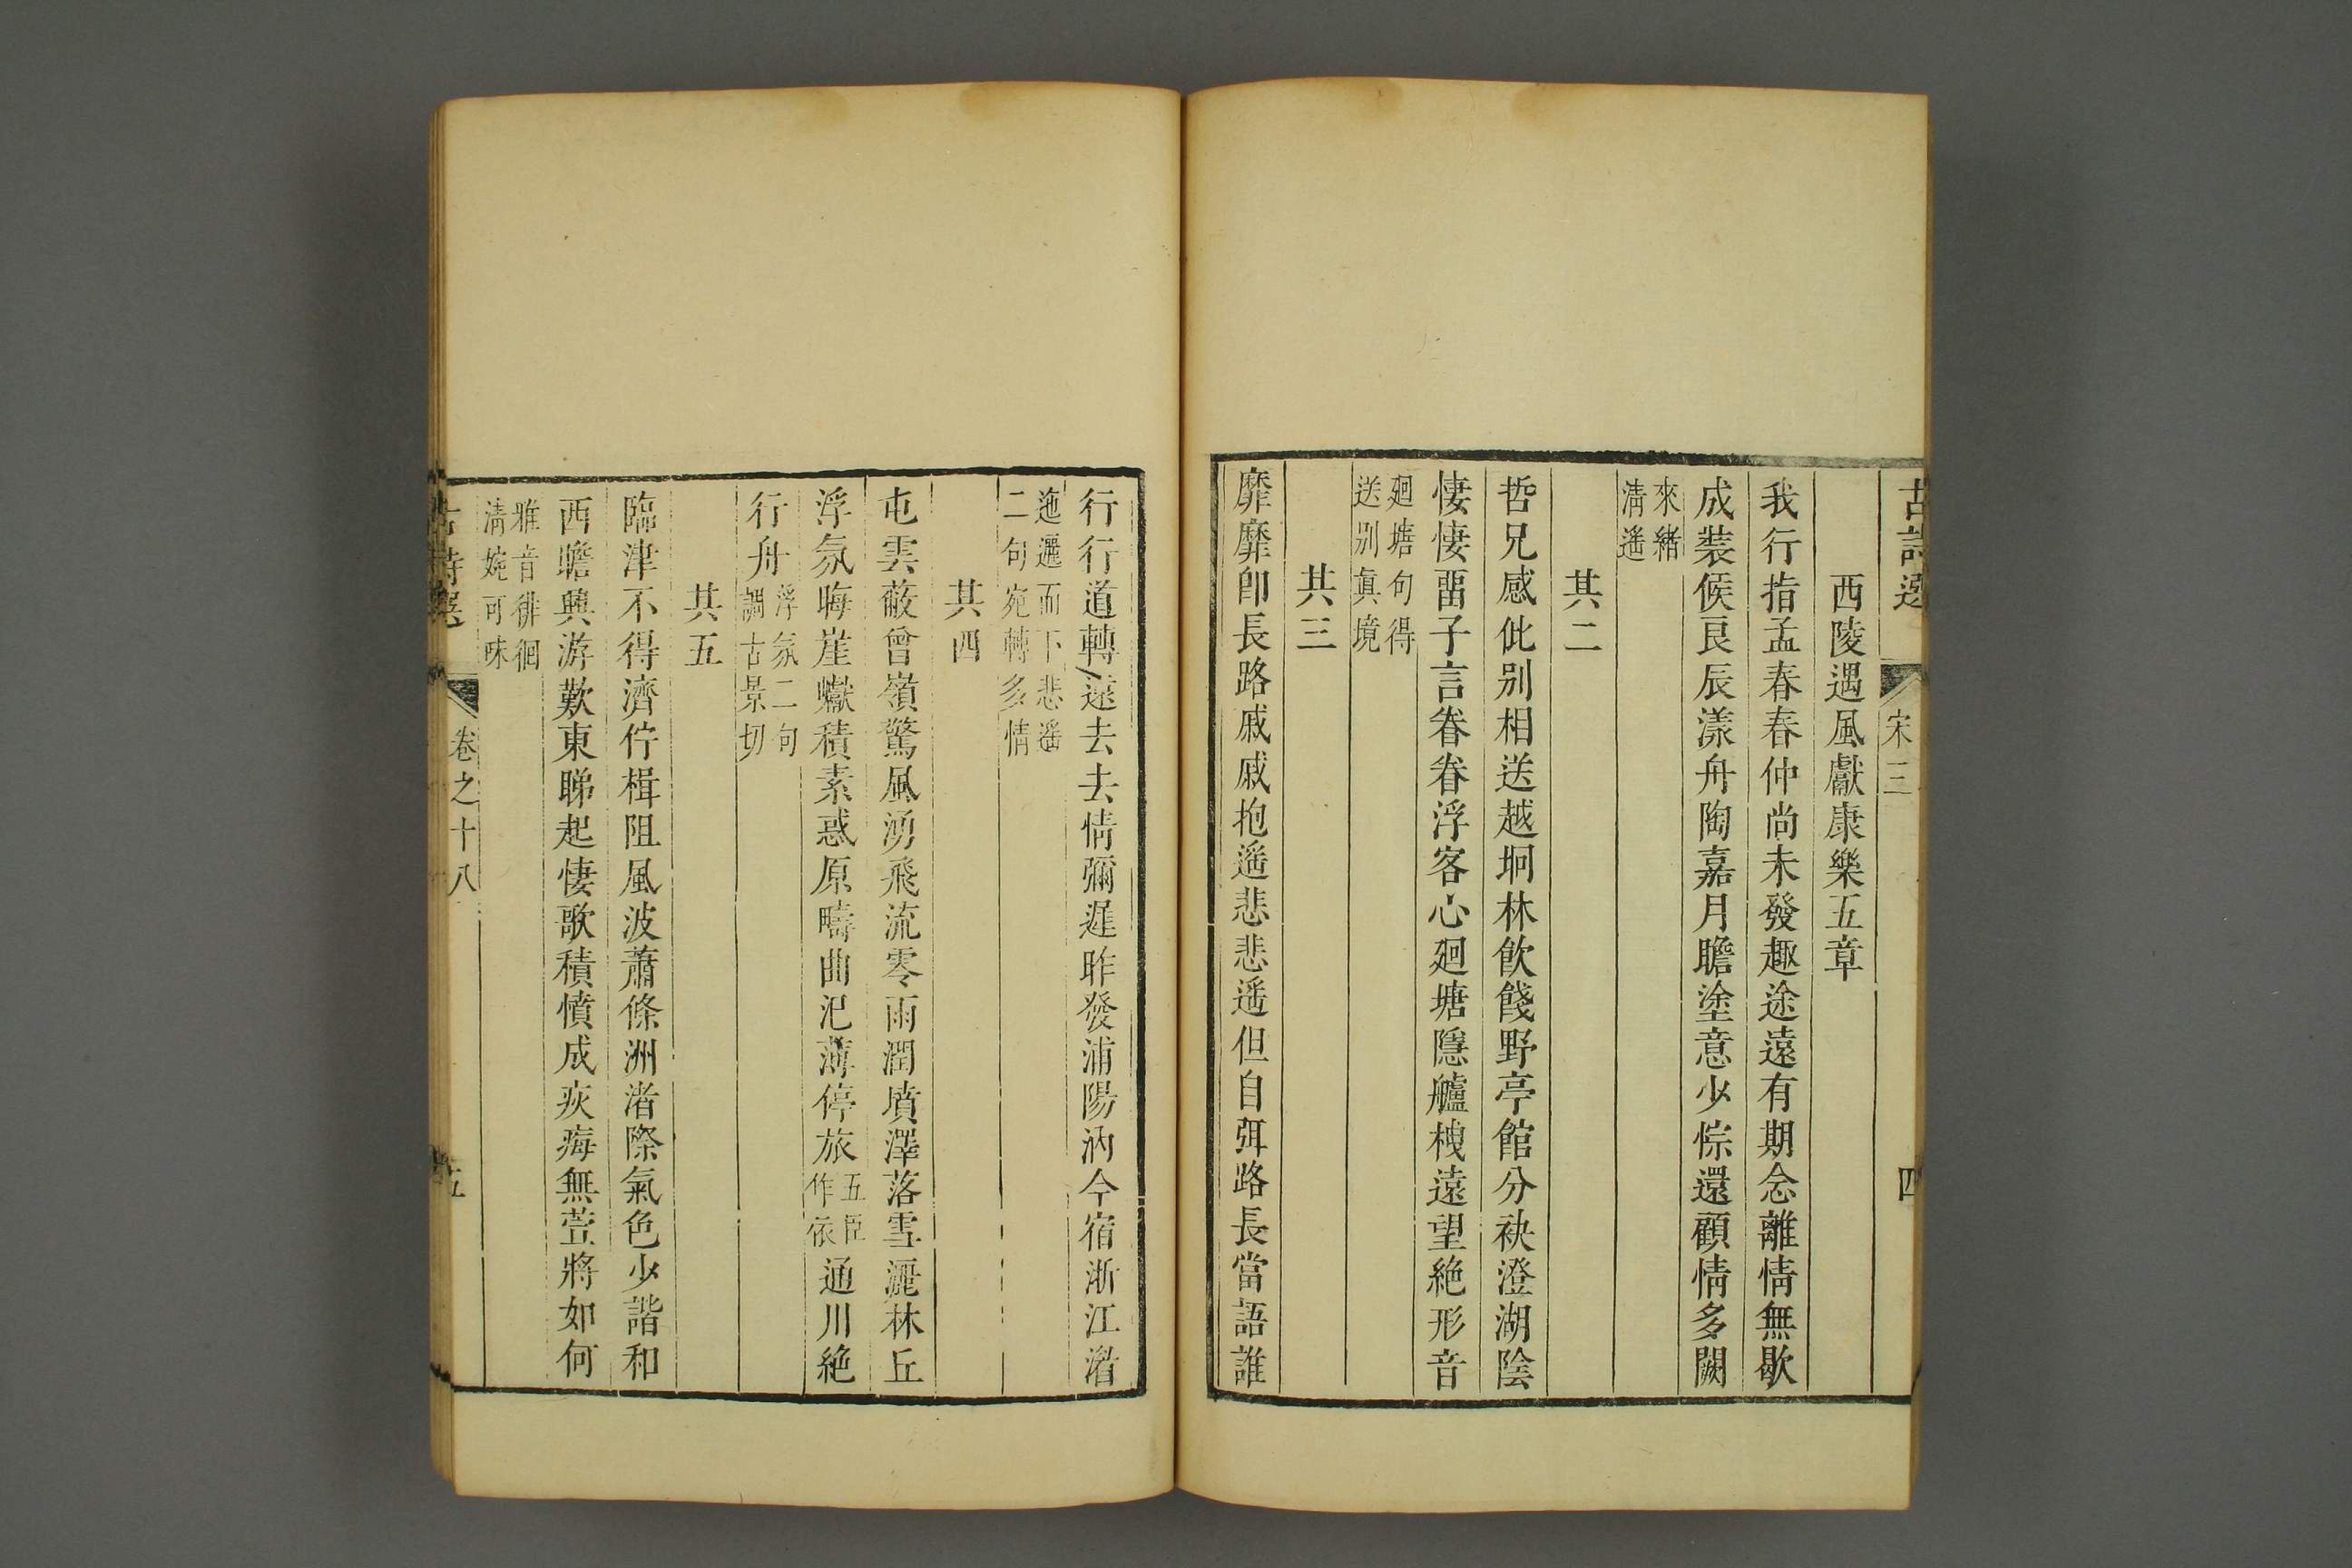 古詩選 宋三 四
西陵遇風獻康樂五章
我行指孟春春仲尚未發趣途遠有期念離情無歇
成裝候良辰漾舟陶嘉月瞻塗意少悰還顧情多闕
來緒
清遙
其二
哲兄感仳别相送越坰林飮餞野亭館分袂澄湖陰
悽悽畱子言眷眷浮客心廻塘隱艫栧遠望絶形音
廻塘句得
送别眞境
其三
靡靡卽長路戚戚抱遙悲悲遙但自弭路長當語誰
行行道轉遠去去情彌遲昨發浦陽汭今宿浙江湄
迤邐而下悲遙
二句宛轉多情
其四
屯雲蔽曾嶺驚風湧飛流零雨潤墳澤落雪灑林丘
浮氛晦崖巘積素惑原疇曲汜薄停旅五臣作依通川絶
行舟浮氛二句調古景切
其五
臨津不得濟佇楫阻風波蕭條洲渚際氣色少諧和
西瞻興游歎東睇起悽歌積憤成疢痗無萱將如何
雅音徘徊
清婉可味
古詩選 卷之十八 五